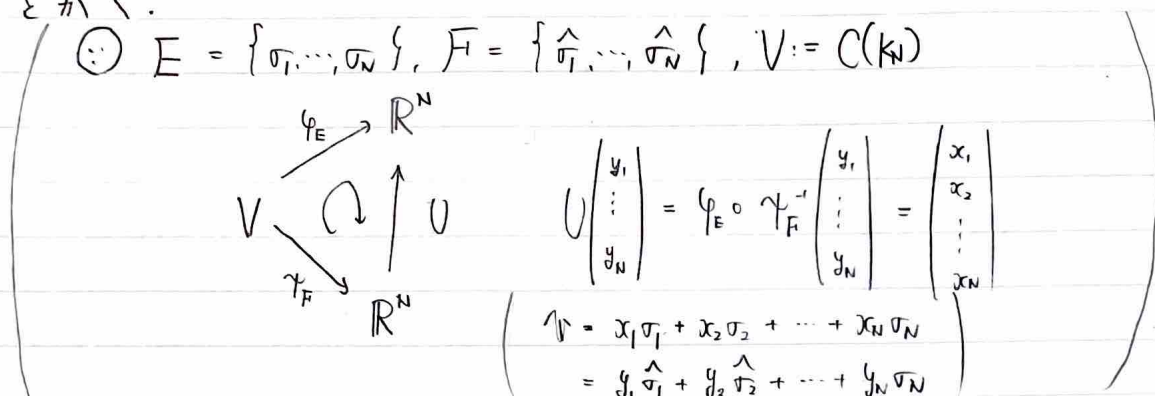 ∵ E = {σ₁, ⋯, σ_N}, F = {σ̂₁, ⋯, σ̂_N}, V := C(K_N)
φ_E ℝ^N
V U
ψ_F ℝ^N
U (y₁ ⋮ y_N) = φ_E ∘ ψ_F⁻¹ (y₁ ⋮ y_N) = (x₁ x₂ ⋮ x_N)
v = x₁σ₁ + x₂σ₂ + ⋯ + x_Nσ_N
= y₁σ̂₁ + y₂σ̂₂ + ⋯ + y_Nσ_N